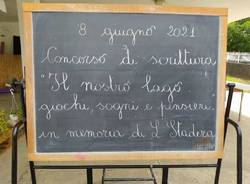 8 giugno 2021
Concorso di scrittura
"Il nostro lago
giochi, sogni e pensieri"
in memoria di L. Stadera